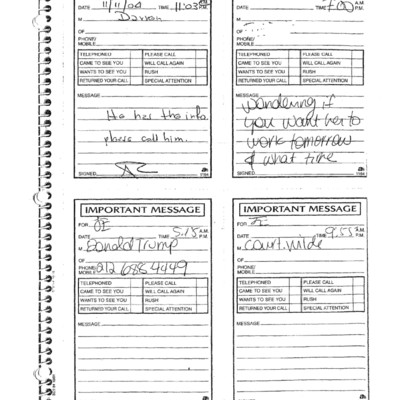 DATE 11/11/04 TIME 11:03 A.M. P.M.
M Darren
OF
PHONE/
MOBILE
TELEPHONED PLEASE CALL
CAME TO SEE YOU WILL CALL AGAIN
WANTS TO SEE YOU RUSH
RETURNED YOUR CALL SPECIAL ATTENTION
MESSAGE
He has the info.
please call him.
SIGNED
DATE TIME P.M.
M
OF
PHONE/
MOBILE
TELEPHONED PLEASE CALL
CAME TO SEE YOU WILL CALL AGAIN
WANTS TO SEE YOU RUSH
RETURNED YOUR CALL SPECIAL ATTENTION
MESSAGE
wondering if
you want her to
work tomorrow
& what time
SIGNED
IMPORTANT MESSAGE
FOR JE
DATE TIME 5:15 A.M. P.M.
M Donald Trump
OF
PHONE/
MOBILE
TELEPHONED PLEASE CALL
CAME TO SEE YOU WILL CALL AGAIN
WANTS TO SEE YOU RUSH
RETURNED YOUR CALL SPECIAL ATTENTION
MESSAGE
IMPORTANT MESSAGE
FOR JE
DATE TIME 9:55 A.M. P.M.
M court.wilde
OF
PHONE/
MOBILE
TELEPHONED PLEASE CALL
CAME TO SEE YOU WILL CALL AGAIN
WANTS TO SEE YOU RUSH
RETURNED YOUR CALL SPECIAL ATTENTION
MESSAGE